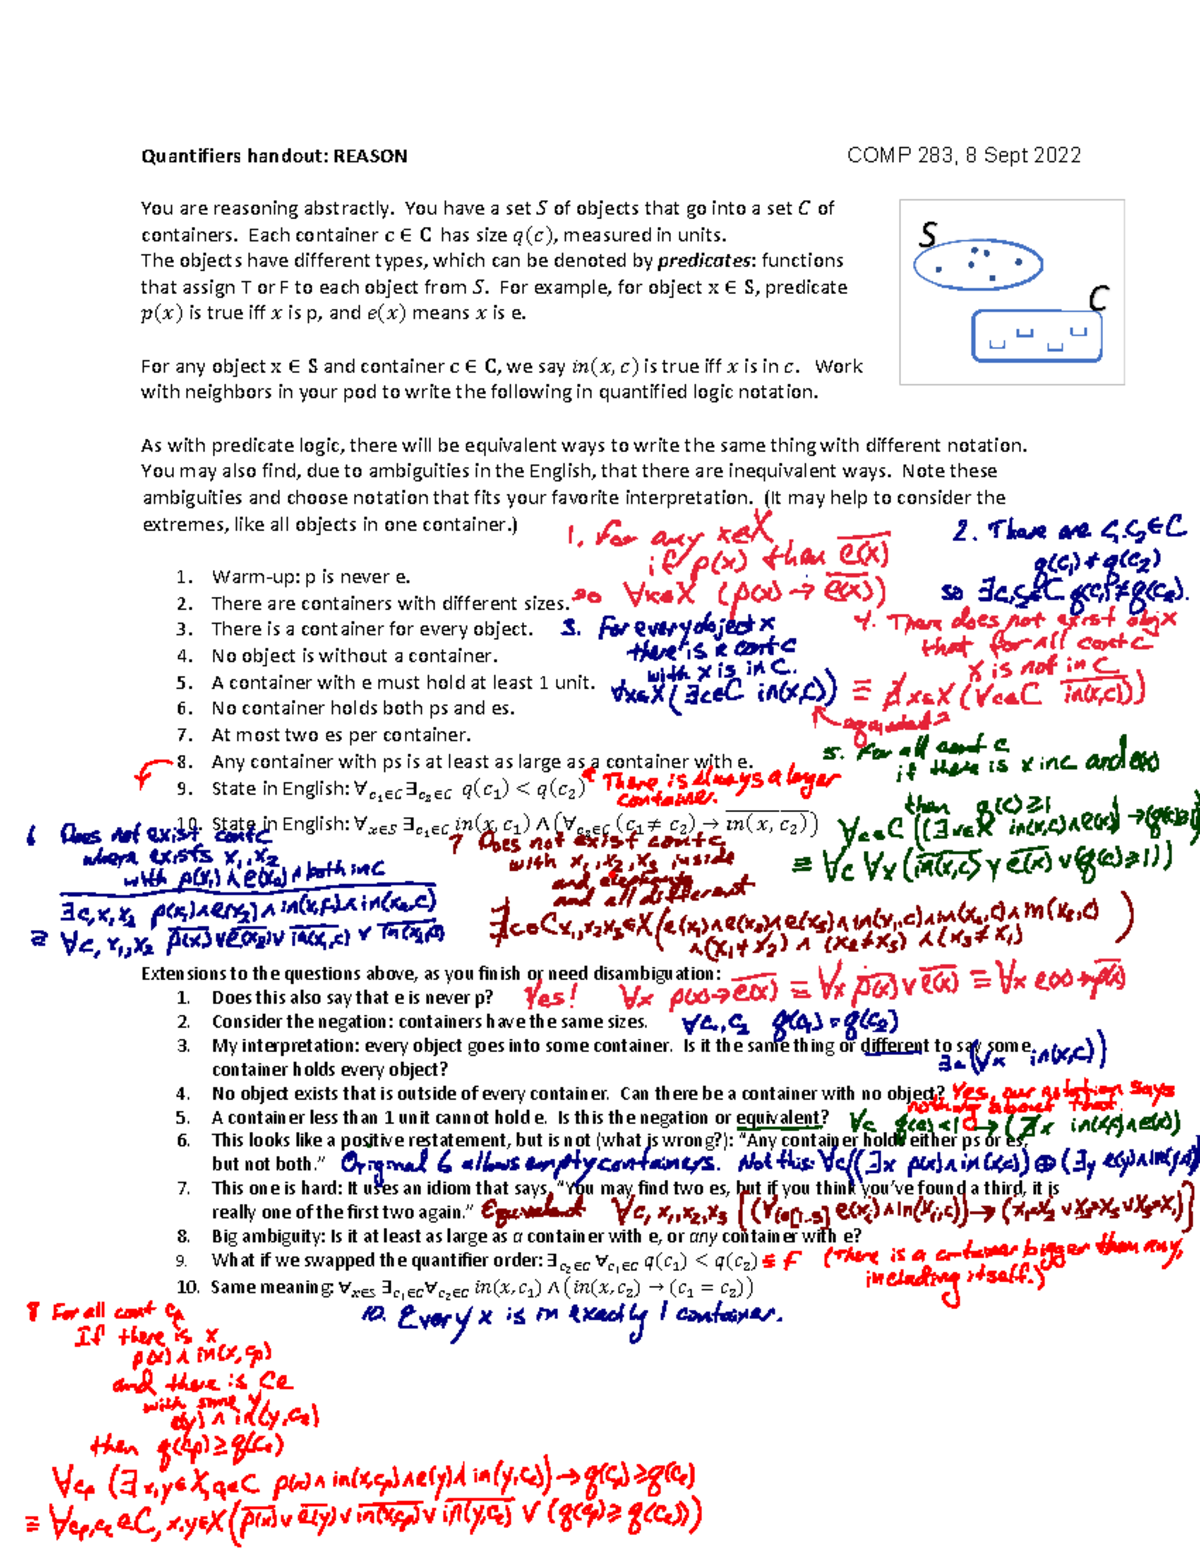 Quantifiers handout: REASON
COMP 283, 8 Sept 2022
You are reasoning abstractly. You have a set S of objects that go into a set C of
containers. Each container c ∈ C has size q(c), measured in units.
The objects have different types, which can be denoted by predicates: functions
that assign T or F to each object from S. For example, for object x ∈ S, predicate
p(x) is true iff x is p, and e(x) means x is e.
S
C
For any object x ∈ S and container c ∈ C, we say in(x, c) is true iff x is in c. Work
with neighbors in your pod to write the following in quantified logic notation.
As with predicate logic, there will be equivalent ways to write the same thing with different notation.
You may also find, due to ambiguities in the English, that there are inequivalent ways. Note these
ambiguities and choose notation that fits your favorite interpretation. (It may help to consider the
extremes, like all objects in one container.)
1. For any x∈X
if p(x) then e̅(̅x̅)̅
so ∀x∈X (p(x) → e̅(̅x̅)̅)
2. There are c₁,c₂∈C
q(c₁) ≠ q(c₂)
so ∃c₁,c₂∈C q(c₁)≠q(c₂).
1. Warm-up: p is never e.
2. There are containers with different sizes.
3. There is a container for every object.
4. No object is without a container.
5. A container with e must hold at least 1 unit.
6. No container holds both ps and es.
7. At most two es per container.
8. Any container with ps is at least as large as a container with e.
9. State in English: ∀c₁∈C ∃c₂∈C q(c₁) < q(c₂)
10. State in English: ∀x∈S ∃c₁∈C in(x, c₁) ∧ (∀c₂∈C (c₁ ≠ c₂) → i̅n̅(̅x̅,̅ ̅c̅₂̅)̅)
3. For every object x
there is a cont c
with x is in c.
∀x∈X (∃c∈C in(x,c))
4. There does not exist obj x
that for all cont c
x is not in c
≡ ∄x∈X (∀c∈C i̅n̅(̅x̅,̅c̅)̅)
equivalent?
5. For all cont c
if there is x in c and e(x)
then q(c) ≥ 1
∀c∈C ((∃x∈X in(x,c)∧e(x)) → (q(c)≥1))
≡ ∀c ∀x (i̅n̅(̅x̅,̅c̅)̅ ∨ e̅(̅x̅)̅ ∨ (q(c)≥1))
There is always a larger
container.
6 Does not exist cont c
where exists x₁,x₂
with p(x₁) ∧ e(x₂) ∧ both in c
∃c,x₁,x₂ p(x₁)∧e(x₂)∧in(x₁,c)∧in(x₂,c)
≡ ∀c, x₁,x₂ p̅(̅x̅₁̅)̅ ∨ e̅(̅x̅₂̅)̅ ∨ i̅n̅(̅x̅₁̅,̅c̅)̅ ∨ i̅n̅(̅x̅₂̅,̅c̅)̅
7 Does not exist cont c
with x₁,x₂,x₃ inside
and elephants
and all different
∄c∈C x₁,x₂,x₃∈X (e(x₁)∧e(x₂)∧e(x₃)∧in(x₁,c)∧in(x₂,c)∧in(x₃,c)
∧(x₁≠x₂) ∧ (x₂≠x₃) ∧(x₃≠x₁))
Extensions to the questions above, as you finish or need disambiguation:
1. Does this also say that e is never p? Yes! ∀x p(x)→e̅(̅x̅)̅ ≡ ∀x p̅(̅x̅)̅ ∨ e̅(̅x̅)̅ ≡ ∀x e(x)→p̅(̅x̅)̅
2. Consider the negation: containers have the same sizes. ∀c₁,c₂ q(c₁) = q(c₂)
3. My interpretation: every object goes into some container. Is it the same thing or different to say some
container holds every object? ∃c(∀x in(x,c))
4. No object exists that is outside of every container. Can there be a container with no object? Yes, our notation says
nothing about that.
5. A container less than 1 unit cannot hold e. Is this the negation or equivalent? ∀c q(c)<1 → (∄x in(x,c)∧e(x))
6. This looks like a positive restatement, but is not (what is wrong?): “Any container holds either ps or es,
but not both.” Original 6 allows empty containers. Not this: ∀c((∃x p(x)∧in(x,c)) ⊕ (∃y e(y)∧in(y,c))
7. This one is hard: It uses an idiom that says, “You may find two es, but if you think you’ve found a third, it is
really one of the first two again.” Equivalent ∀c, x₁,x₂,x₃ [(∀i∈[1..3] e(xᵢ)∧in(xᵢ,c)) → (x₁=x₂ ∨ x₂=x₃ ∨ x₃=x₁)]
8. Big ambiguity: Is it at least as large as a container with e, or any container with e?
9. What if we swapped the quantifier order: ∃c₂∈C ∀c₁∈C q(c₁) < q(c₂) ≡ F (There is a container bigger than any,
including itself.)
10. Same meaning: ∀x∈S ∃c₁∈C ∀c₂∈C in(x, c₁) ∧ (in(x, c₂) → (c₁ = c₂))
10. Every x is in exactly 1 container.
8 For all cont cₚ
If there is x
p(x) ∧ in(x, cₚ)
and there is cₑ
with some y
e(y) ∧ in(y, cₑ)
then q(cₚ) ≥ q(cₑ)
∀cₚ (∃x,y∈X, cₑ∈C p(x)∧in(x,cₚ)∧e(y)∧in(y,cₑ)) → q(cₚ)≥q(cₑ)
≡ ∀cₚ,cₑ∈C, x,y∈X (p̅(̅x̅)̅ ∨ e̅(̅y̅)̅ ∨ i̅n̅(̅x̅,̅c̅ₚ̅)̅ ∨ i̅n̅(̅y̅,̅c̅ₑ̅)̅ ∨ (q(cₚ) ≥ q(cₑ)))